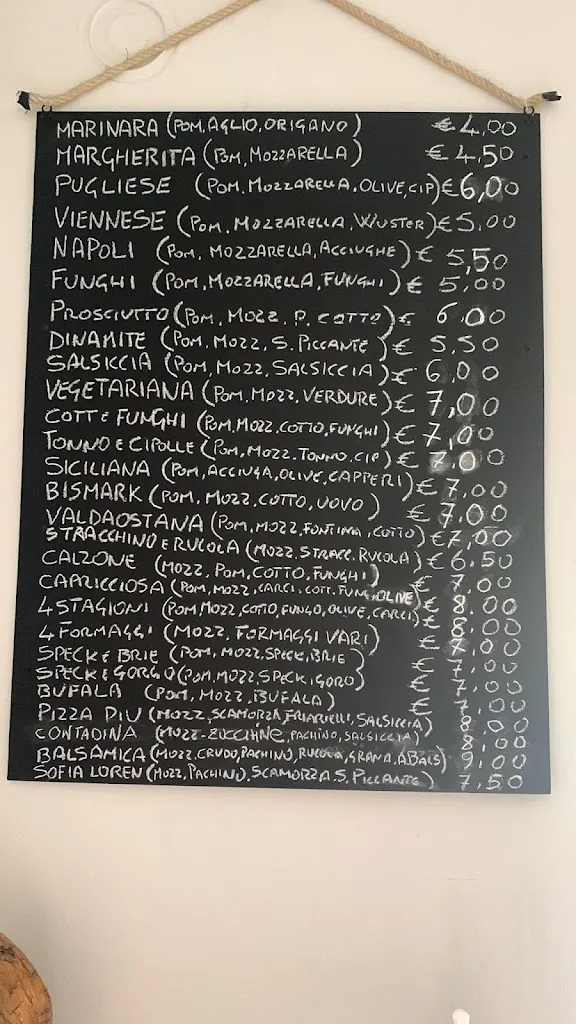 MARINARA (POM, AGLIO, ORIGANO) € 4,00
MARGHERITA (POM, MOZZARELLA) € 4,50
PUGLIESE (POM, MOZZARELLA, OLIVE, CIP) € 6,00
VIENNESE (POM, MOZZARELLA, WUSTER) € 5,00
NAPOLI (POM, MOZZARELLA, ACCIUGHE) € 5,50
FUNGHI (POM, MOZZARELLA, FUNGHI) € 5,00
PROSCIUTTO (POM, MOZZ, P. COTTO) € 6,00
DINAMITE (POM, MOZZ, S. PICCANTE) € 5,50
SALSICCIA (POM, MOZZ, SALSICCIA) € 6,00
VEGETARIANA (POM, MOZZ, VERDURE) € 7,00
COTT E FUNGHI (POM, MOZZ, COTTO, FUNGHI) € 7,00
TONNO E CIPOLLE (POM, MOZZ, TONNO, CIP) € 7,00
SICILIANA (POM, ACCIUGA, OLIVE, CAPPERI) € 7,00
BISMARK (POM, MOZZ, COTTO, UOVO) € 7,00
VALDAOSTANA (POM, MOZZ, FONTINA, COTTO) € 7,00
STRACCHINO E RUCOLA (MOZZ, STRACC. RUCOLA) € 6,50
CALZONE (MOZZ, POM, COTTO, FUNGHI) € 7,00
CAPRICCIOSA (POM, MOZZ, CARCI, COTT, FUNG, OLIVE) € 8,00
4 STAGIONI (POM MOZZ, COTTO, FUNGO, OLIVE, CARCI) € 8,00
4 FORMAGGI (MOZZ, FORMAGGI VARI) € 7,00
SPECK E BRIE (POM, MOZZ, SPECK, BRIE) € 7,00
SPECK E GORGO (POM, MOZZ, SPECK, GORG) € 7,00
BUFALA (POM, MOZZ, BUFALA) € 7,00
PIZZA DIU (MOZZ, SCAMORZA, FRIARIELLI, SALSICCIA) 8,00
CONTADINA (MOZZ-ZUCCHINE, PACHINO, SALSICCIA) 8,00
BALSAMICA (MOZZ, CRUDO, PACHINO, RUCOLA, GRANA, A BALS) 9,00
SOFIA LOREN (MOZZ, PACHINO, SCAMORZA, S. PICCANTE) 7,50